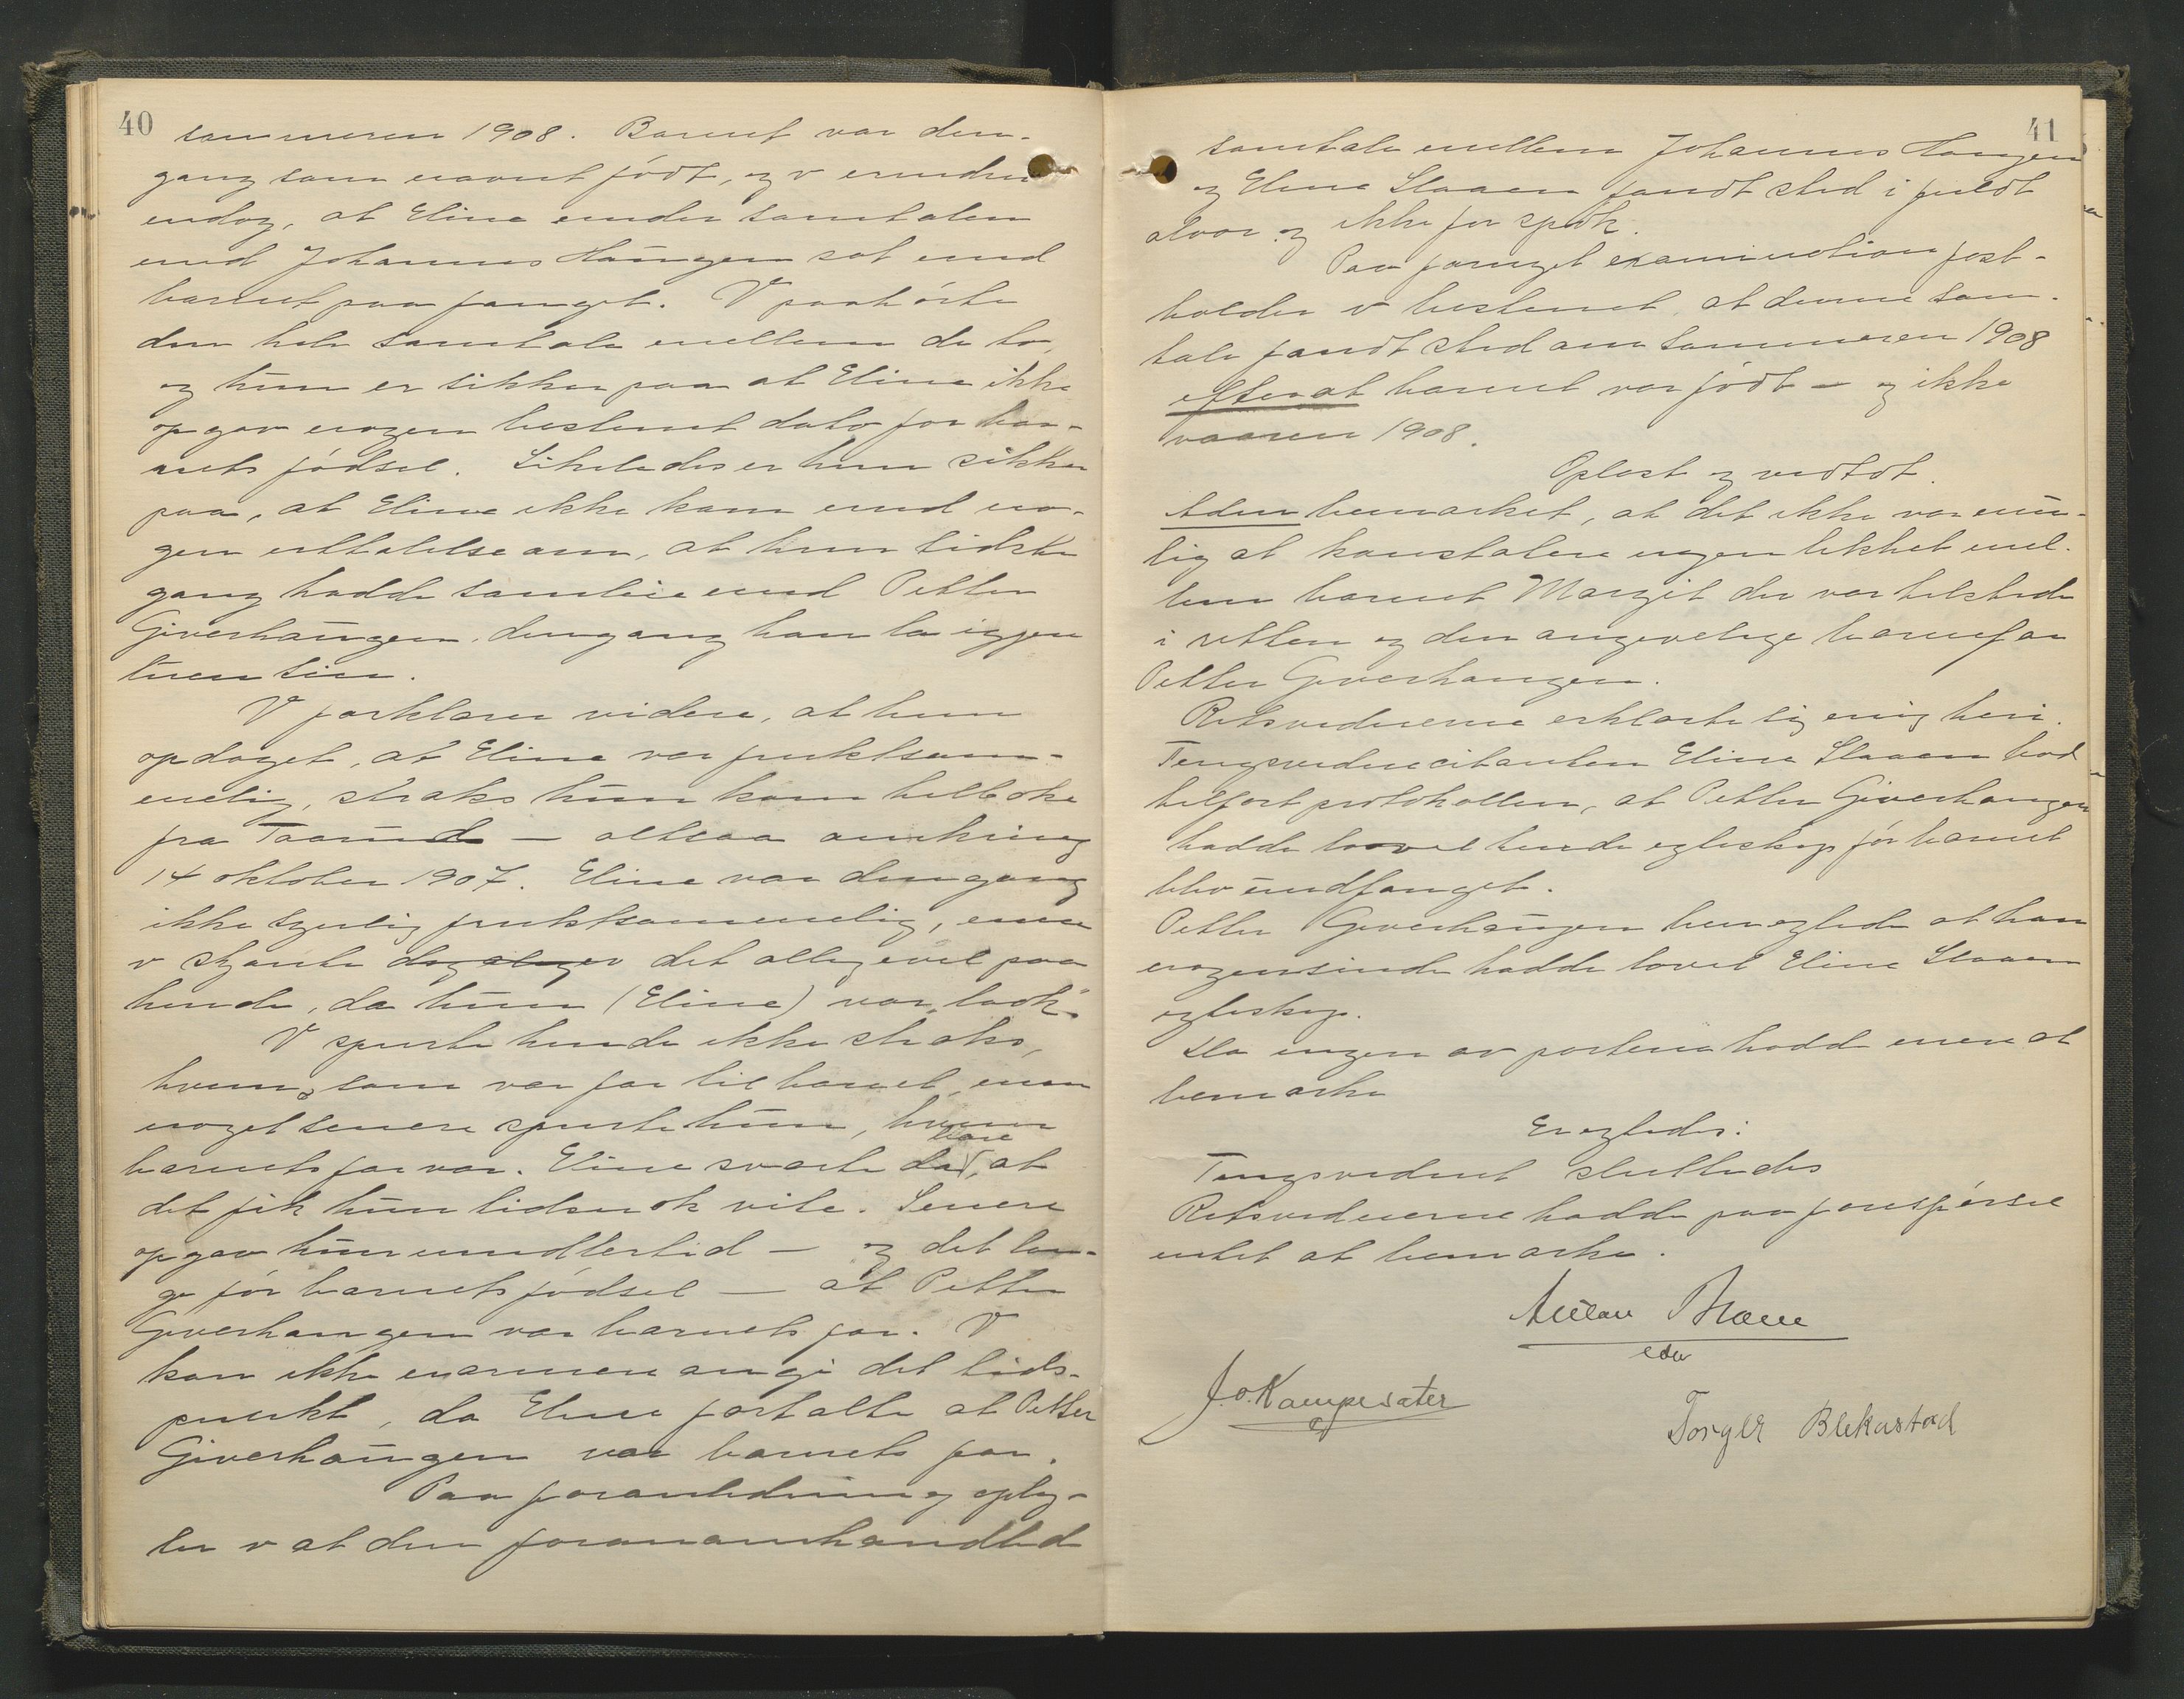 40
sommeren 1908. Barnet var den-
gang som nævnt födt, og v erindrer
endog, at Eline under samtalen
med Johannes Haugen sat med
barnet paa fanget. V paahörte
den hele samtale mellem de to,
og hun er sikker paa at Eline ikke
opgav nogen bestemt dato for bar-
nets födsel. Likeledes er hun sikker
paa, at Eline ikke kom med no-
gen uttalelse om, at hun sidste
gang hadde samleie med Petter
Giverhaugen dengang han laa igjen
huen sin.
V forklarer videre, at hun
opdaget, at Eline var fruktsom-
melig, straks hun kom tilbake
fra Taarud – altsaa omkring
14 oktober 1907. Eline var dengang
ikke synlig fruktsommelig, men
v skjönte det alligevel paa
hende, da hun (Eline) var "laak".
V spurte hende ikke straks,
hvem som var far til barnet, men
noget senere spurte hun, hvem
barnets far var. Eline svarte da bare, at
det fik hun tidsnok vite. Senere
opgav hun imidlertid – og det len-
ge för barnets födsel – at Petter
Giverhaugen var barnets far. V
kan ikke nærmere angi det tids-
punkt, da Eline fortalte at Petter
Giverhaugen var barnets far.
Paa foranledning oply-
ser v at den foranomhandlede
41
samtale mellem Johannes Haugen
og Eline Slaaen fandt sted i fuldt
alvor og ikke for spök.
Paa fornyet examination fast-
holder v bestemt, at denne sam-
tale fandt sted om sommeren 1908
efterat barnet var födt – og ikke
vaaren 1908.
Oplæst og vedtat.
Adm bemærket, at det ikke var mu-
lig at konstatere nogen likhet mel-
lem barnet Margit der var tilstede
i retten og den angivelige barnefar
Petter Giverhaugen.
Retsvidnerne erklærte sig enig heri.
Tingsvidnecitanten Eline Slaaen bad
tilfört protokollen, at Petter Giverhaugen
hadde lovet hende egteskap för barnet
blev undfanget.
Petter Giverhaugen benegtede at han
nogensinde hadde lovet Eline Slaaen
egteskap.
Da ingen av parterne hadde mere at
bemærke
Eragtedes:
Tingsvidnet sluttedes
Retsvidnerne hadde paa forespörsel
intet at bemærke.
edv
J. O. Kampesæter
Torger Blekastad